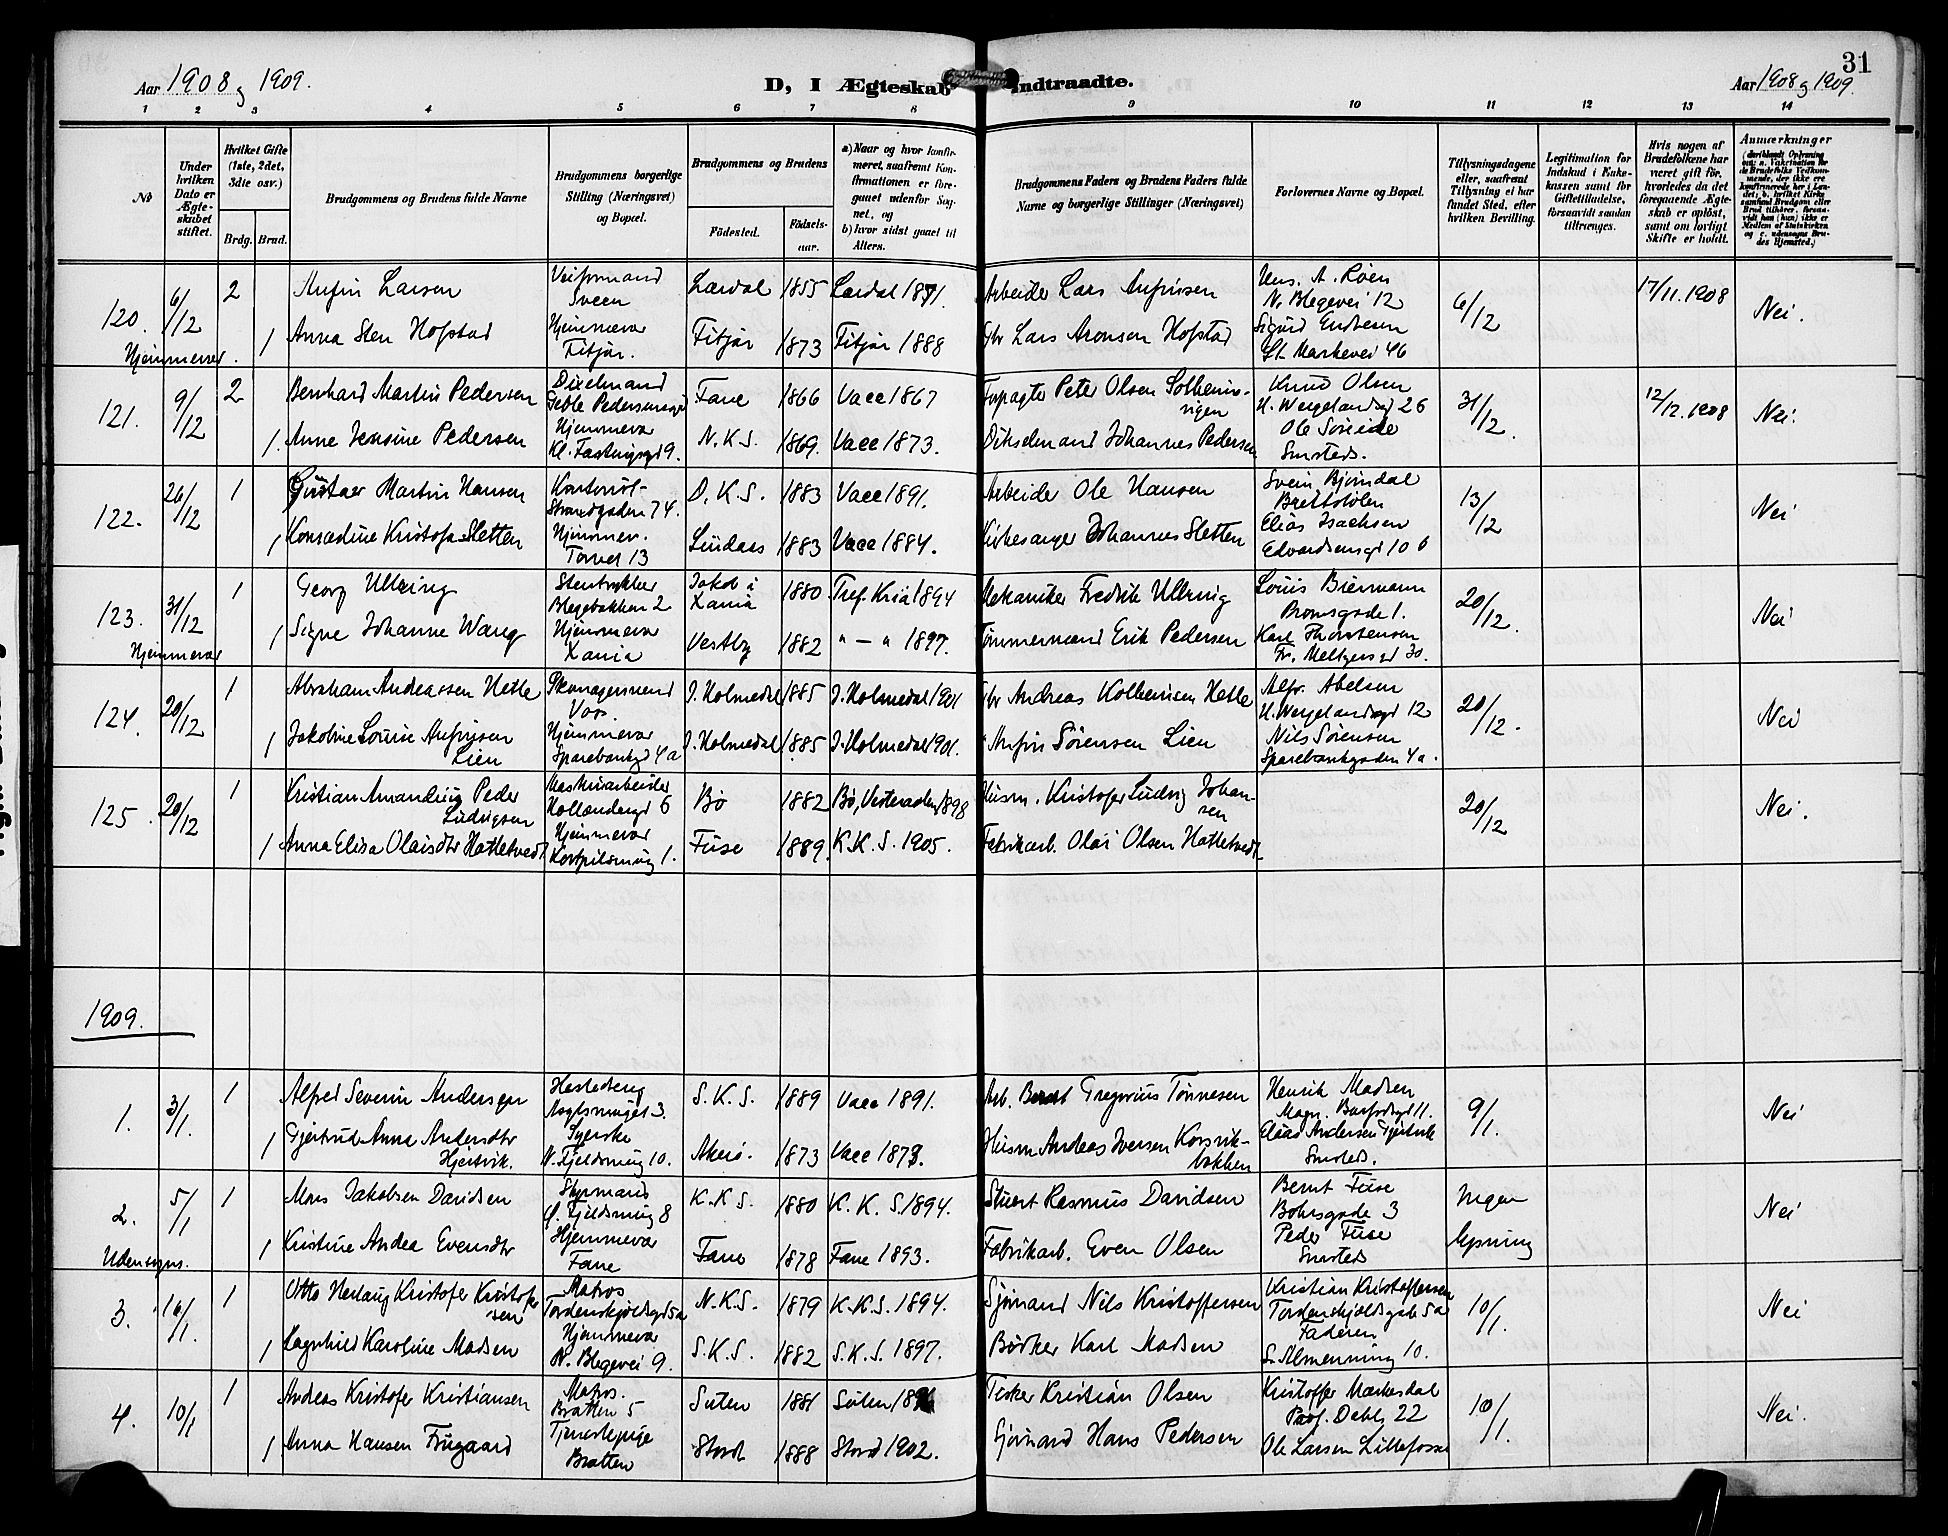 31
Aar 1908 og 1909.
D, I Ægteskab Indtraadte.
Aar 1908 og 1909.
1 2 3 4 5 6 7 8 9 10 11 12 13 14
No
Under hvilken Dato er Ægteskabet stiftet.
Hvilket Gifte (1ste, 2det, 3dte osv.)
Brdg. Brud.
Brudgommens og Brudens fulde Navne
Brudgommens borgerlige Stilling (Næringsvei) og Bopæl.
Brudgommens og Brudens
Födested. Födselsaar.
a) Naar og hvor konfirmeret, saafremt Konfirmationen er foregaaet udenfor Sognet, og
b) hvor sidst gaaet til Alters.
Brudgommens Faders og Brudens Faders fulde Navne og borgerlige Stillinger (Næringsvei)
Forlovernes Navne og Bopæl.
Tillysningsdagene eller, saafremt Tillysning ei har fundet Sted, efter hvilken Bevilling.
Legitimation for Indskud i Enkekassen samt for Giftetilladelse, forsaavidt saadan tiltrænges.
Hvis nogen af Brudefolkene har været gift för, hvorledes da det foregaaende Ægteskab er oplöst, samt om lovligt Skifte er holdt.
Anmærkninger
120. 6/12 2 Anfin Larsen Veiformand Sveen Lærdal 1855 Lærdal 1871. Arbeider Lars Anfinsen A. Røen N. Blegevei 12 6/12 17/11.1908 Nei.
Hjemmevær. 1 Anna Sten Hofstad Hjemmevær Fitjar. Fitjar 1873 Fitjar 1888 Gbr Lars Aronsen Hofstad Sigurd Endresen St. Markevei 46
121. 9/12 2 Bernhard Martin Pedersen Dixelmand Geble Pedersensgd Fane 1866 Vacc 1867 Forpagter Peter Olsen Solheimsvigen Knud Olsen H. Wergelandsgd 26 31/12. 12/12.1908 Nei.
1. Anne Jensine Pedersen Hjemmevær Kl. Fastingsgd 9. N.K.S. 1869. Vacc 1873. Dikselmand Johannes Pedersen Ole Soreide Smsteds.
122. 26/12 1 Gustav Martin Hansen Kontorist Strandgaden 74. D.K.S. 1883 Vacc 1891. Arbeider Ole Hansen Svein Bjørndal Brettstølen 13/12 Nei
1 Konradine Kristofa Sletten Hjemmev. Torvet 13 Lindaas 1883 Vacc 1884. Kirkesanger Johannes Sletten Elias Isachsen Edvardsensgd 10 b
123. 31/12 1 Georg Ullring Stentrykker Blegebakken 2 Jakob i Xania 1880 Tref. Kria 1894 Mekaniker Fredrik Ullring Louis Biermann Bromsgade 1. 20/12. Nei
Hjemmevær 1 Signe Johanne Wang Hjemmevær Xania Vestby 1882 " — " 1897. Tømmermand Erik Pedersen Karl Thorstensen Fr. Meltzersgd 30.
124. 20/12 1 Abraham Andreassen Hetle Skomagersvend Vos. I. Holmedal 1885 I. Holmedal 1901 Gbr Andreas Kolbeinsen Hetle Alfr. Abelsen H. Wergelandsgd 12 20/12. Nei
1 Jakobine Louise Anfinsen Lien Hjemmevær Sparebankgd 4a I. Holmedal 1885. I. Holmedal 1901. " Anfin Sørensen Lien Nils Sørensen Sparebankgaden 4a.
125. 20/12 1 Kristian Amandius Peder Ludvigsen Maskinarbeider Hollendergd 6 Bø 1882 Bø, Vesteraalen 1898 Husm. Kristofer Ludvig Johansen 20/12 Nei.
1 Anna Elisa Olaisdtr Hatletvedt Hjemmevær Fuse 1889. K.K.S. 1905. Fabrikarb. Olai Olsen Hatletvedt
1909.
1. 3/1. 1 Alfred Severin Andersen Hestedreng Asylsmuget 3. S.K.S. 1889 Vacc 1891. Arb. Berent Gregorius Tønnesen Henrik Madsen Magn. Barfodsgd 11. 9/1. Nei
1 Gjertrud Anna Andersdtr Hjertvik. Syerske N. Fjeldsmug 10. Akerø. 1873 Vacc 1873. Husm Andreas Iversen Korsvikbakken Elias Andersen Smsteds.
2. 5/1 1 Mons Jakobsen Davidsen Styrmand Ø. Fjeldsmug 8 K.K.S. 1880 K.K.S. 1894. Stuert Rasmus Davidsen Bernt Fuse Bohrsgade 3 Ingen Nei
Udensogns. 1 Kristine Andea Evensdtr Hjemmevær Fane Fane 1878 Fane 1893. Fabrikarb. Even Olsen Peder Fuse Smsteds lysning
3. 16/1. 1 Otto Herlaug Kristofer Kristofersen Matros Tordenskjoldsgd 5a N.K.S. 1879 K.K.S. 1894. Sjømand Nils Kristoffersen Kristian Kristoffersen Tordenskjoldsgade 5a 10/1. Nei
1 Ragnhild Karoline Madsen Hjemmevær N. Blegevei 9. S.K.S. 1882 S.K.S. 1897. Bødker Karl Madsen Faderen S. Almenning 10.
4. 10/1 1 Andreas Kristofer Kristiansen Matros. Bratten 5 Sulen 1881 Sulen Fisker Kristian Olsen Kristoffer Mærkesdal Prof. Dahls 22 10/1. Nei.
1 Anna Hansen Frugaard Tjenestepige Bratten Stord 1888 Stord 1902. Sjømand Hans Pedersen Ole Larsen Lillefosse